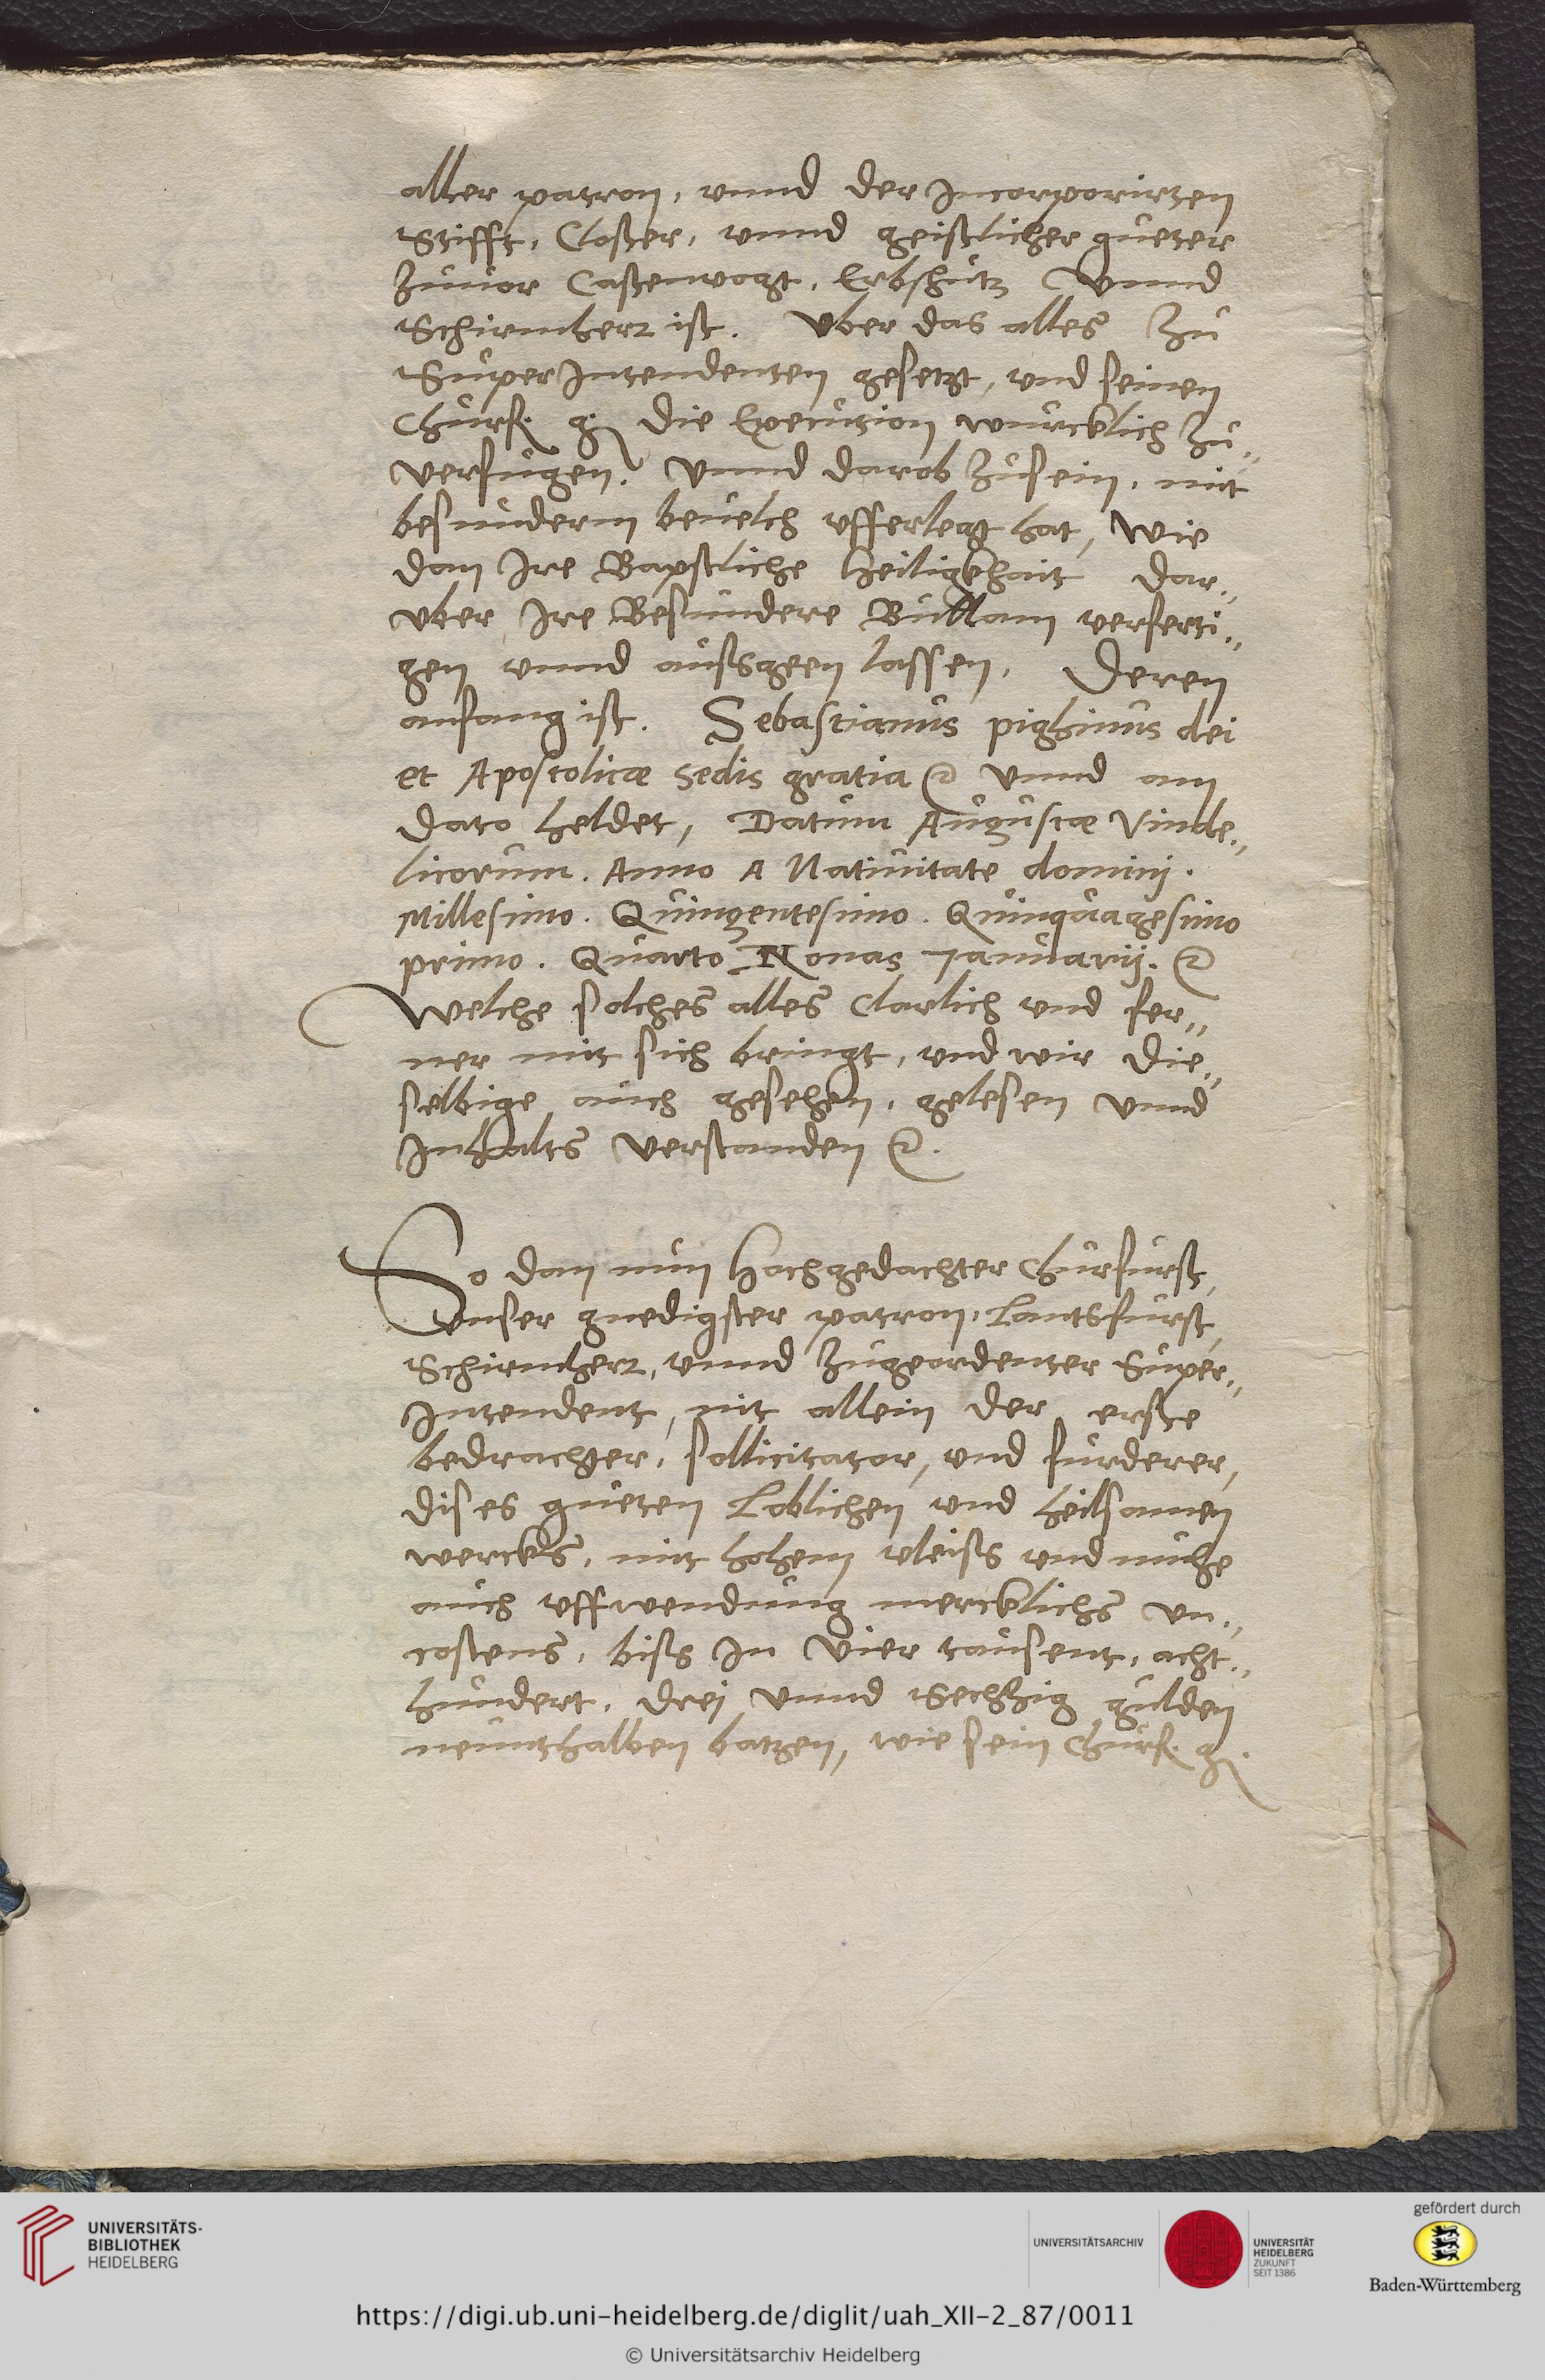 aller patron, vnnd der Incorporirten
Stifft, Closter, vnnd geistlicher gueter
Zuuor Castenvogt, Erbschutz Vnnd
Schirmherr ist. Vber das alles Zu
Superintendenten gesetzt, vnd seinen
Churf. g. die Execution wurcklich zu„
verfugen? Vnnd darob Zusein, mit
besunderm beuelch vfferlegt hat, Wie
dan Ire Bapstliche Heiligkhait dar„
vber Ire Besundere Bullam verferti„
gen vnnd aussgeen lassen, Deren
anfang ist. Sebastianus pighinus dei
et Apostolicæ Sedis gratia ꝛc Vnnd am
Dato heldet, Datum Augustæ Vinde„
licorum. Anno A Natiuitate dominij.
Millesimo. Quingentesimo. Quinquagesimo
primo. Quarto Nonas Januarij. ꝛc
Welche solches alles Clarlich vnd fer„
ner mit sich bringt, vnd wir die„
selbige auch gesehen, gelesen vnnd
Inhalts verstanden ꝛc.
So dan nun Hochgedachter Churfurst,
Vnser gnedigster patron, Lantsfurst,
Schirmherr, vnnd Zugeordenter Super„
Intendent, nit allein der erste
bedrachter, sollicitator, vnd furderer,
dises gueten Loblichen vnd heilsamen
wercks, mit hohem vleiss vnd muhe
auch vffwendung mercklichs Vn„
costens, biss In Vier tausent, acht„
hundert, drej Vnnd Sechzig gulden
neunthalben batzen, wie sein Churf. g.
UNIVERSITÄTS-
BIBLIOTHEK
HEIDELBERG
UNIVERSITÄTSARCHIV
UNIVERSITÄT
HEIDELBERG
ZUKUNFT
SEIT 1386
gefördert durch
Baden-Württemberg
https://digi.ub.uni-heidelberg.de/diglit/uah_XII-2_87/0011
© Universitätsarchiv Heidelberg